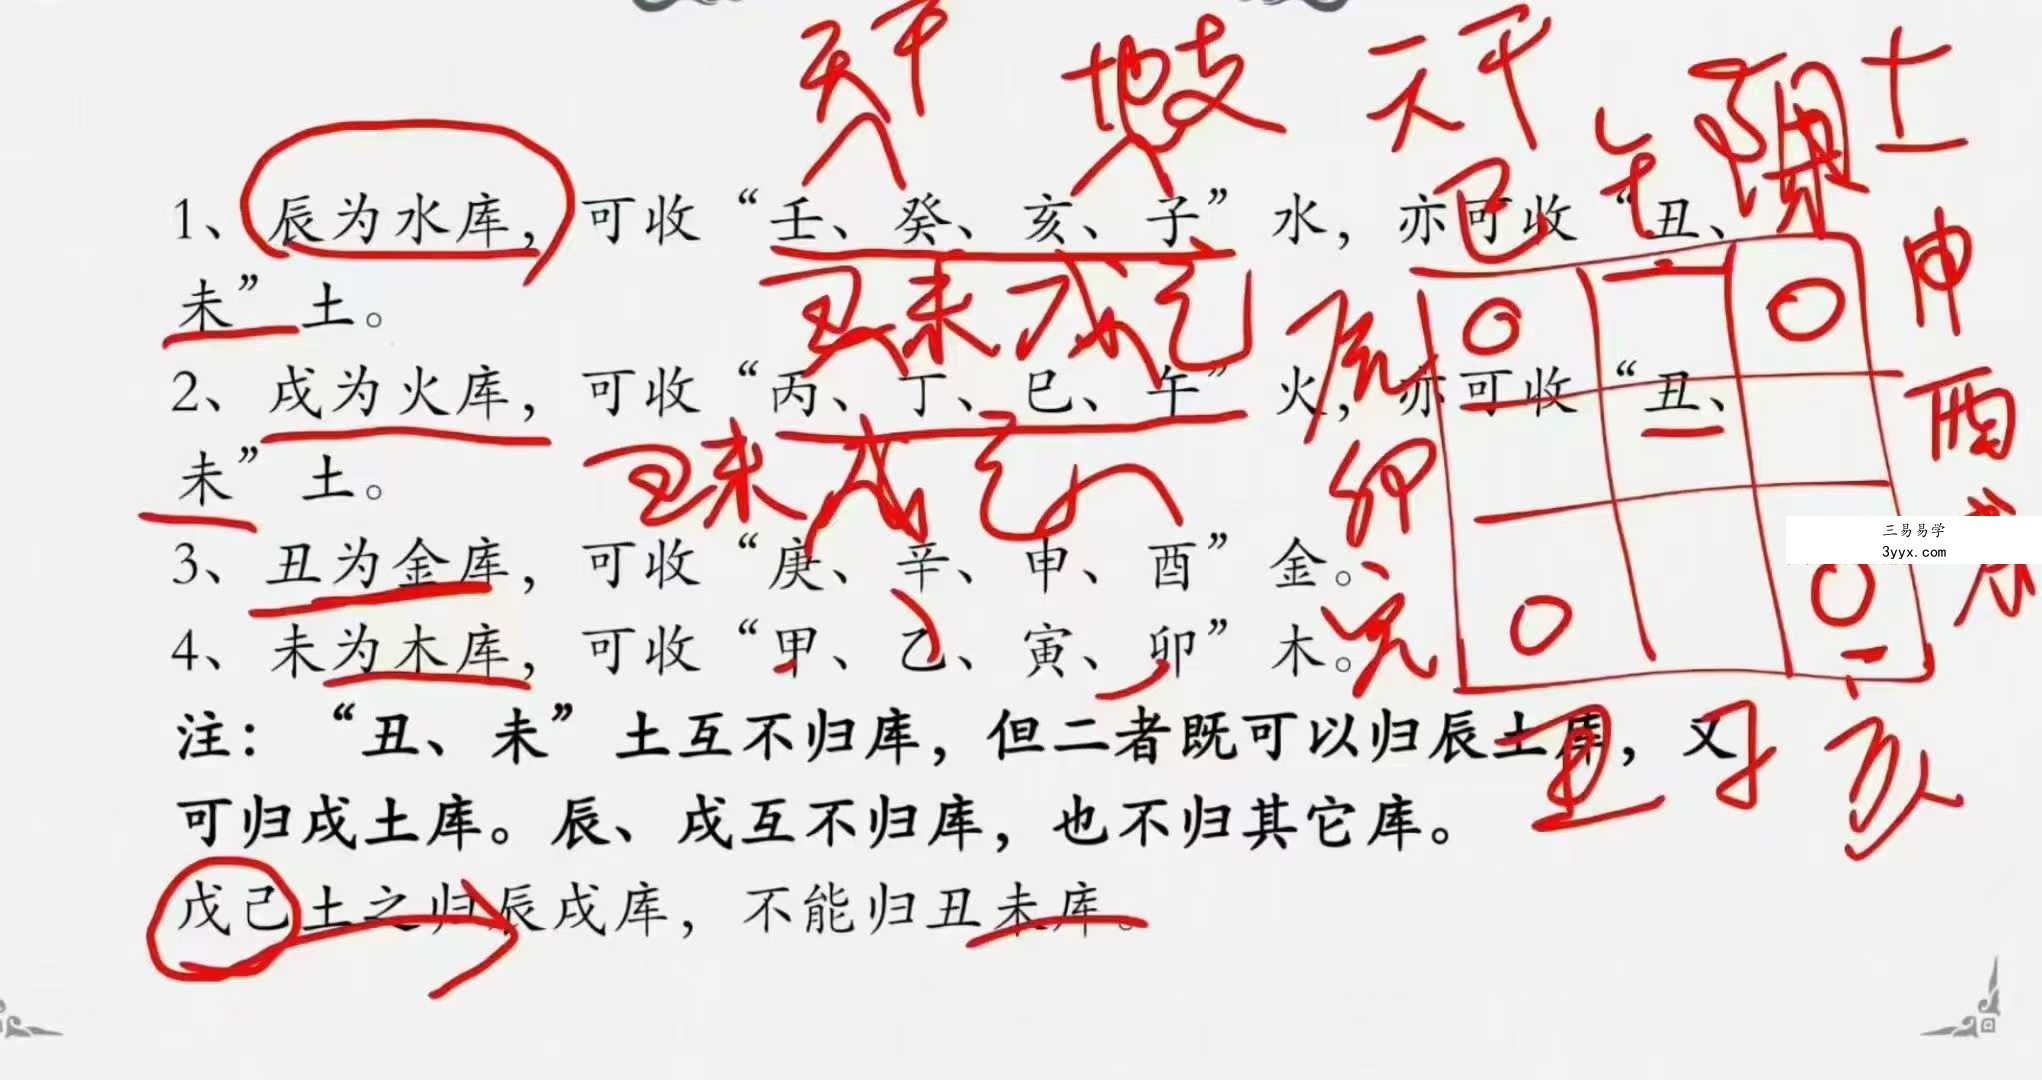 天干
地支
天干
土
1、辰为水库，可收“壬、癸、亥、子”水，亦可收“丑、
未”土。
丑未戊己
2、戌为火库，可收“丙、丁、巳、午”火，亦可收“丑、
未”土。
丑未戊己
3、丑为金库，可收“庚、辛、申、酉”金。
4、未为木库，可收“甲、乙、寅、卯”木。
注：“丑、未”土互不归库，但二者既可以归辰土库，又
可归戌土库。辰、戌互不归库，也不归其它库。
戊己土之归辰戌库，不能归丑未库。
巳
午
申
酉
辰
卯
丑
子
亥
三易易学
3yyx.com